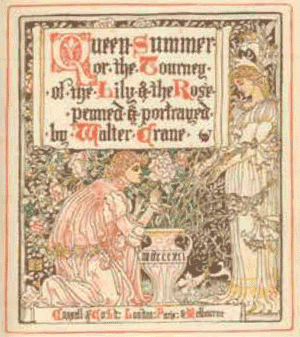 Queen Summer
or the Tourney
of the Lily & the Rose
penned & portrayed
by Walter Crane
Cassell & Co Ld: London: Paris: & Melbourne